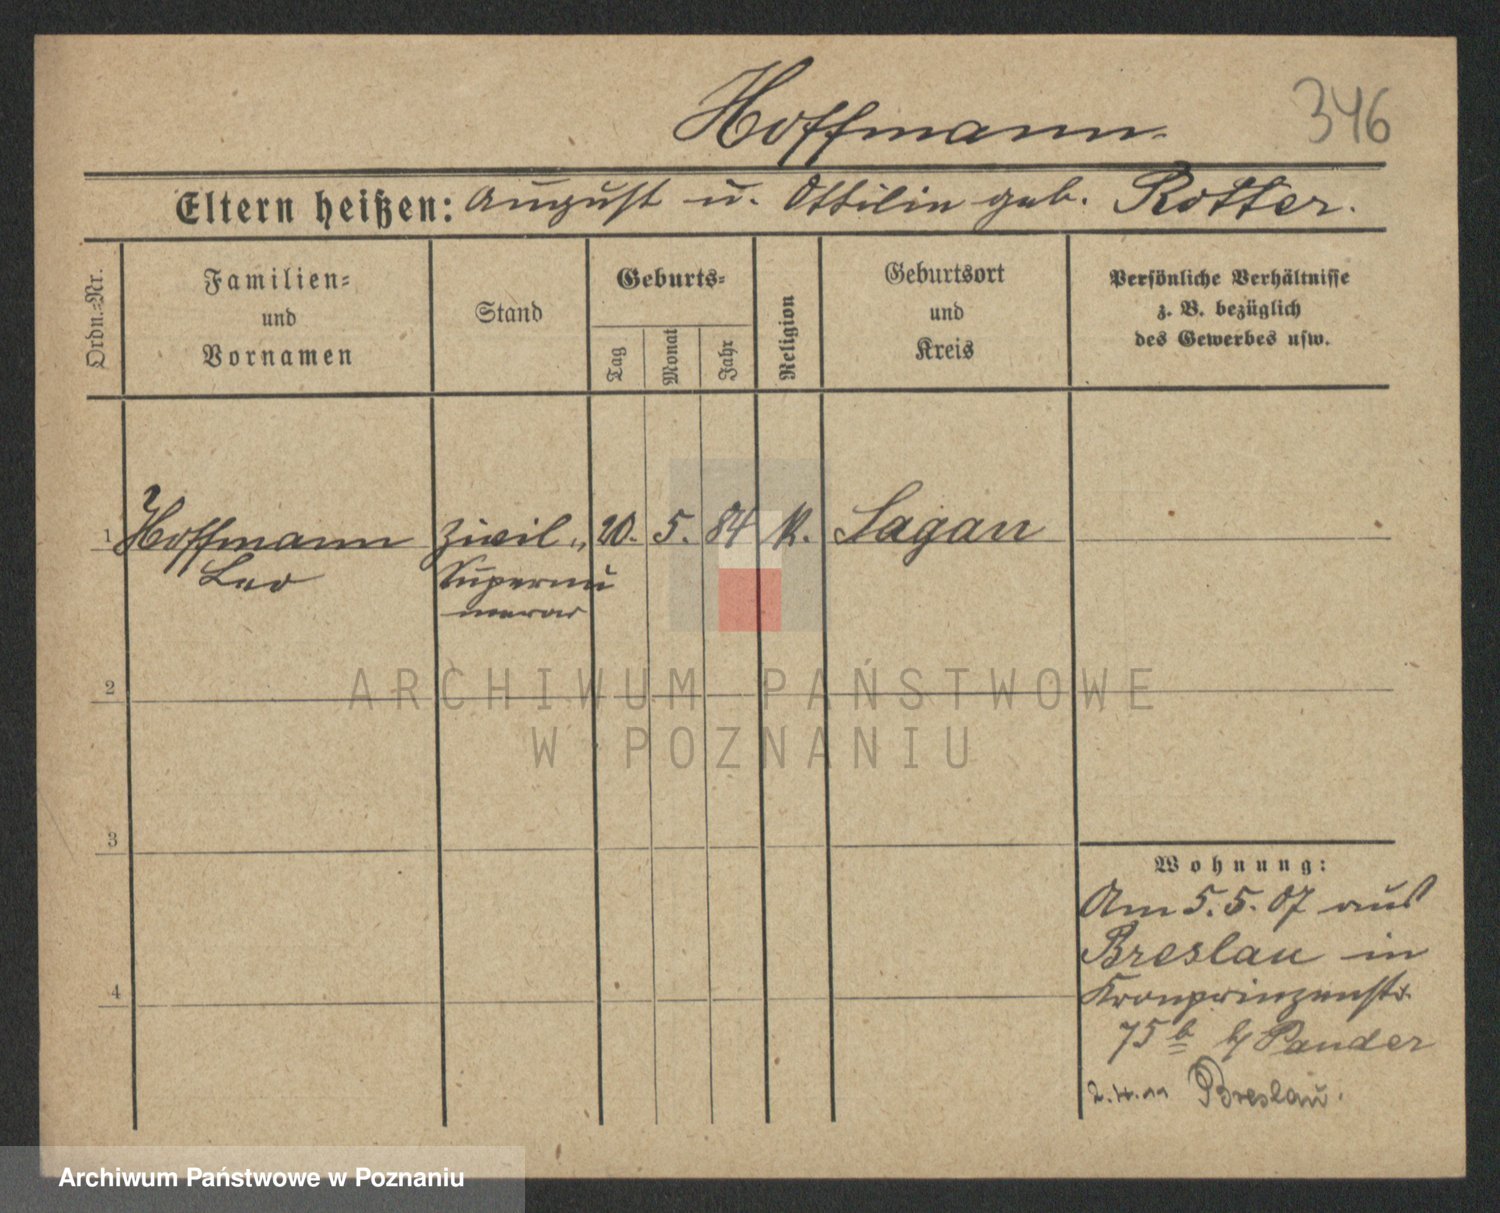 Hoffmann.
346
Eltern heißen: August u. Ottilie geb. Rotter.
Ordn.=Nr.
Familien=
und
Vornamen
Stand
Geburts=
Tag
Monat
Jahr
Religion
Geburtsort
und
Kreis
Persönliche Verhältnisse
z. B. bezüglich
des Gewerbes usw.
1 Hoffmann Zivil„ 20. 5. 84 k. Sagan
Leo Supernu
merar
2
ARCHIWUM PAŃSTWOWE
W POZNANIU
3
Wohnung:
Am 5.5.07 aus
Breslau in
4 Kronprinzenstr.
75b b/ Pander
2.4.11 Breslau.
Archiwum Państwowe w Poznaniu